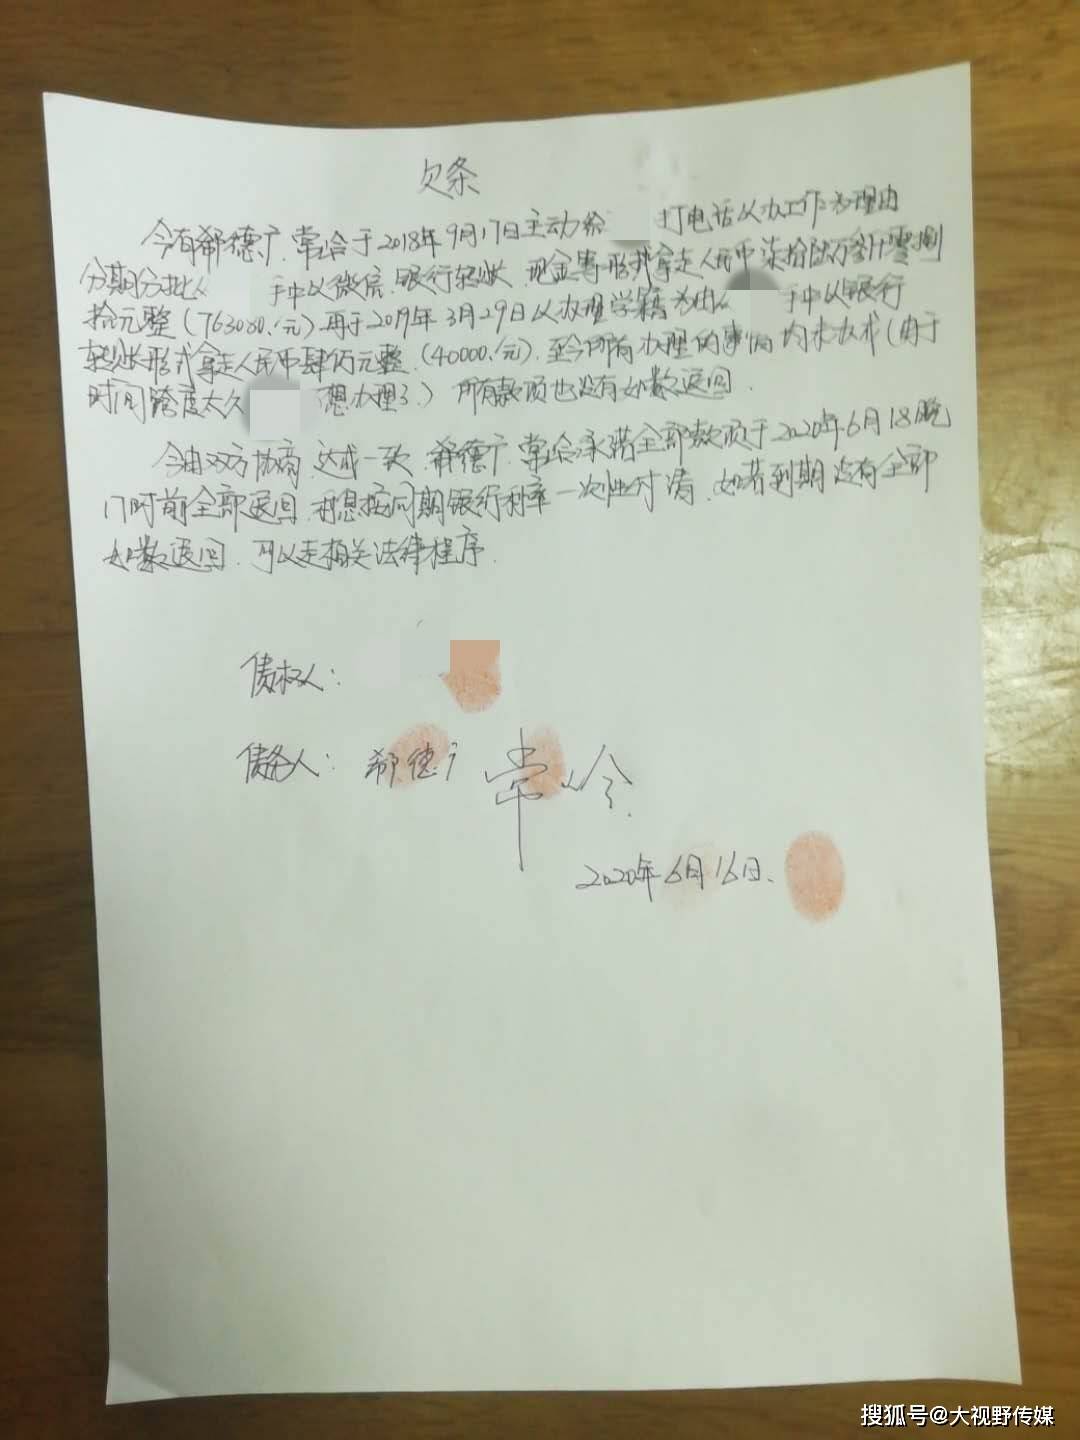 欠条
今有郗德广.常岭于2018年9月17日主动给 打电话以办工作为理由
分期分批从 手中以微信.银行转账.现金等形式拿走人民币柒拾陆万叁仟零捌
拾元整(763080./元)再于2019年3月29日以办理学籍为由从 手中以银行
转账形式拿走人民币肆万元整.(40000./元).至今所有办理的事情均未办成(由于
时间跨度太久 想办理了.) 所有款项也没有如数返回.
今由双方协商.达成一致.郗德广.常岭承诺全部款项于2020年6月18晚
17时前全部返回.利息按同期银行利率一次性付清.如若到期没有全部
如数返回.可以走相关法律程序.
债权人:
债务人: 郗德广 常岭
2020年6月16日.
搜狐号@大视野传媒